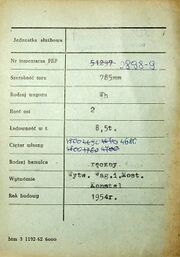 Jednostka służbowa
Nr inwentarza PKP 51247 2898-9
Szerokość toru 785mm
Rodzaj wagonu Wh
Ilość osi 2
Ładowność w t. 8,5t.
Ciężar własny
Rodzaj hamulca ręczny
Wytwórnia Wytw. Wag.i.Most.
Konstal
Rok budowy 1954r.
htm 3 1192-62 6000